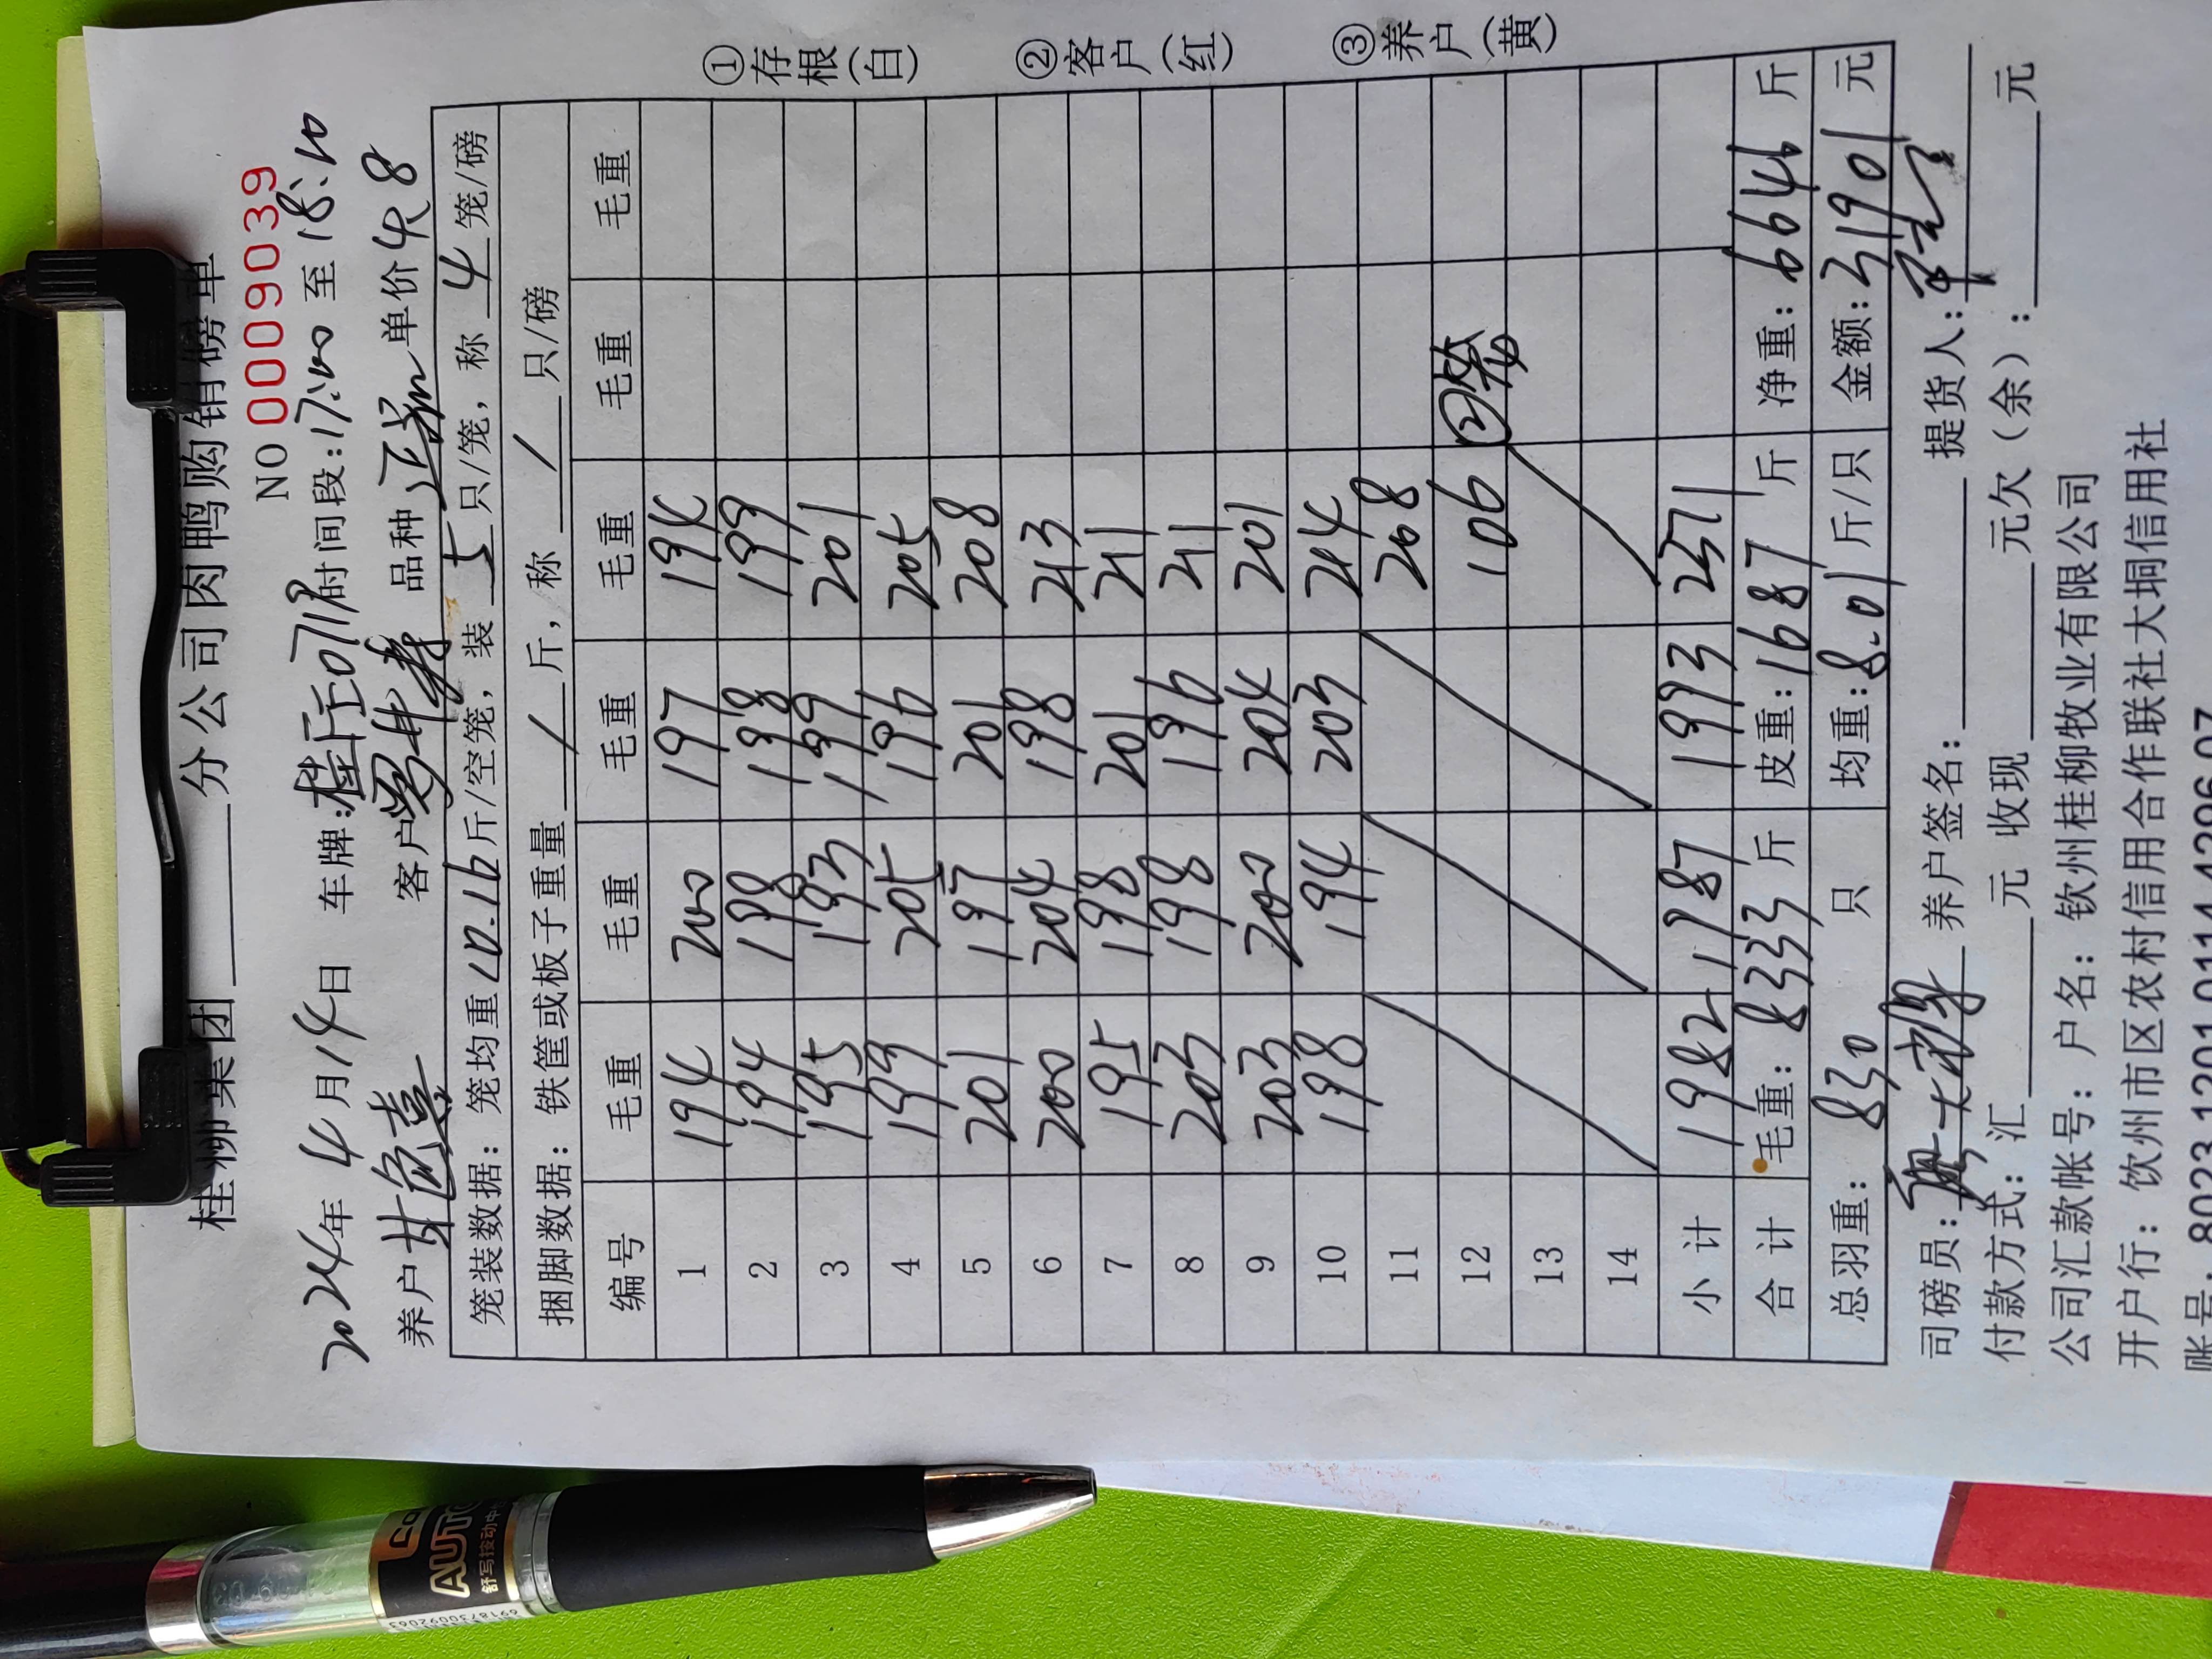 桂柳集团 分公司肉鸭购销磅单
NO 0009039
2024年 4月14日 车牌: 时间段:17:00至18:10
养户 客户 品种 单价4.8
笼装数据: 笼均重10.16斤/空笼, 装 5 只/笼, 称 4 笼/磅
捆脚数据: 铁筐或板子重量 / 斤, 称 / 只/磅
编号 毛重 毛重 毛重 毛重 毛重 毛重
1 194 200 197 194
2 194 198 198 199
3 195 193 199 201
4 199 205 196 205
5 201 197 201 208
6 200 204 198 213
7 195 198 201 211
8 203 198 196 211
9 203 200 204 201
10 198 194 203 214
11 208
12 106 ②笼
13
14
小计 1982 1987 1993 2371
合计 毛重: 8333 斤 皮重: 1687 斤 净重: 6646 斤
总羽重: 830 只 均重: 8.01 斤/只 金额: 31901 元
司磅员: 养户签名: 提货人:
付款方式: 汇 元 收现 元欠(余): 元
公司汇款帐号: 户名: 钦州桂柳牧业有限公司
开户行: 钦州市区农村信用合作联社大垌信用社
账号:
①存根(白) ②客户(红) ③养户(黄)
AUTO
舒写按动中
6918730092063